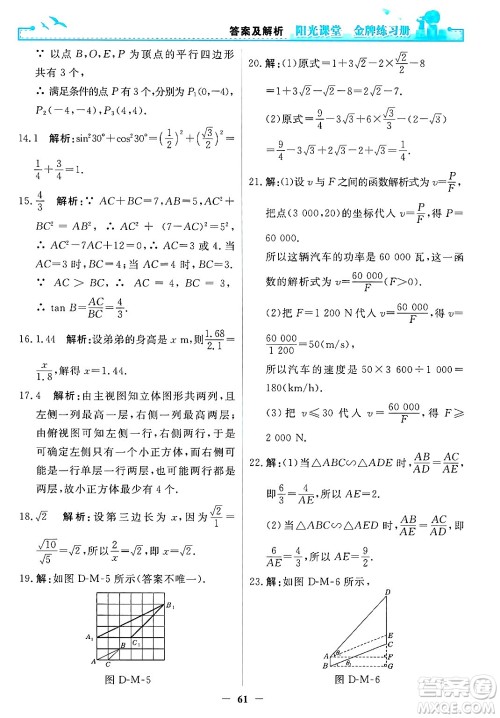 答案及解析 阳光课堂 金牌练习册
∵ 以点 B,O,E,P 为顶点的平行四边形有三个,
∴ 满足条件的点 P 有三个,分别为 P(0,-4),
14.1 解析:sin²30°+cos²30°=(1/2)²+(√3/2)²
=1/4+3/4=1.
15.4/3 解析:∵ AC+BC=7,∴ BC=7-AC.
∵ AC²+BC²=AB²,∴ AC²+(7-AC)²=5²,
∴ AC²-7AC+12=0,∴ AC=4 或 AC=3.
∵ AC>BC,∴ AC=4,∴ BC=3,
∴ tan B=AC/BC=4/3.
16.1.44 解析:设弟弟的身高是 x m,则1.68/2.1=
x/1.8,解得 x=1.44.
17.4 解析:由主视图知立体图形共两列,且
左侧一列最高一层,右侧一列最高两层;
由俯视图可知左侧一行,右侧两行,于是,
可确定左侧只有一个小正方体,而右侧可
能是一行单层一行两层,也可能两行都是
两层,故小正方体最少为 4 块.
18.√2 解析:设第三边长为 x,则由题意可得
√10/√5=2/x,所以 x=√2.
19.解:如图 D-M-5 所示(答案不唯一).
A₁
B₁
C₁
A
B
C
图 D-M-5
20.解:(1)原式=1+3×√2-√2-8
=1+3√2-√2-8
=2√2-7.
(2)原式=9/4-√3×6×√3/3+√2×√2
=9/4-6+2
=-7/4.
21.解:(1)设 v 与 F 之间的函数解析式为 v=P/F,
把点(3 000,20)的坐标代入 v=P/F,得 P=
60 000.
所以这辆汽车的功率是 60 000 瓦,这一函
数的解析式为 v=60 000/F(F>0).
(2)将 F=1 200 代入 v=60 000/F,得 v=
60 000/1 200=50(m/s).
所以汽车的速度是 50×3 600÷1 000=
180(km/h).
(3)把 v≤30 代入 v=60 000/F,得 F≥
2 000 N.
22.解:(1)当△ABC∽△ADE 时,AB/AD=AC/AE,
所以12/6=8/AE,所以 AE=4.
(2)当△ABC∽△AED 时,AB/AE=AC/AD,
所以12/AE=8/6,所以 AE=9.
23.解:如图 D-M-6.
D
E
C
F
B
A
图 D-M-6
61